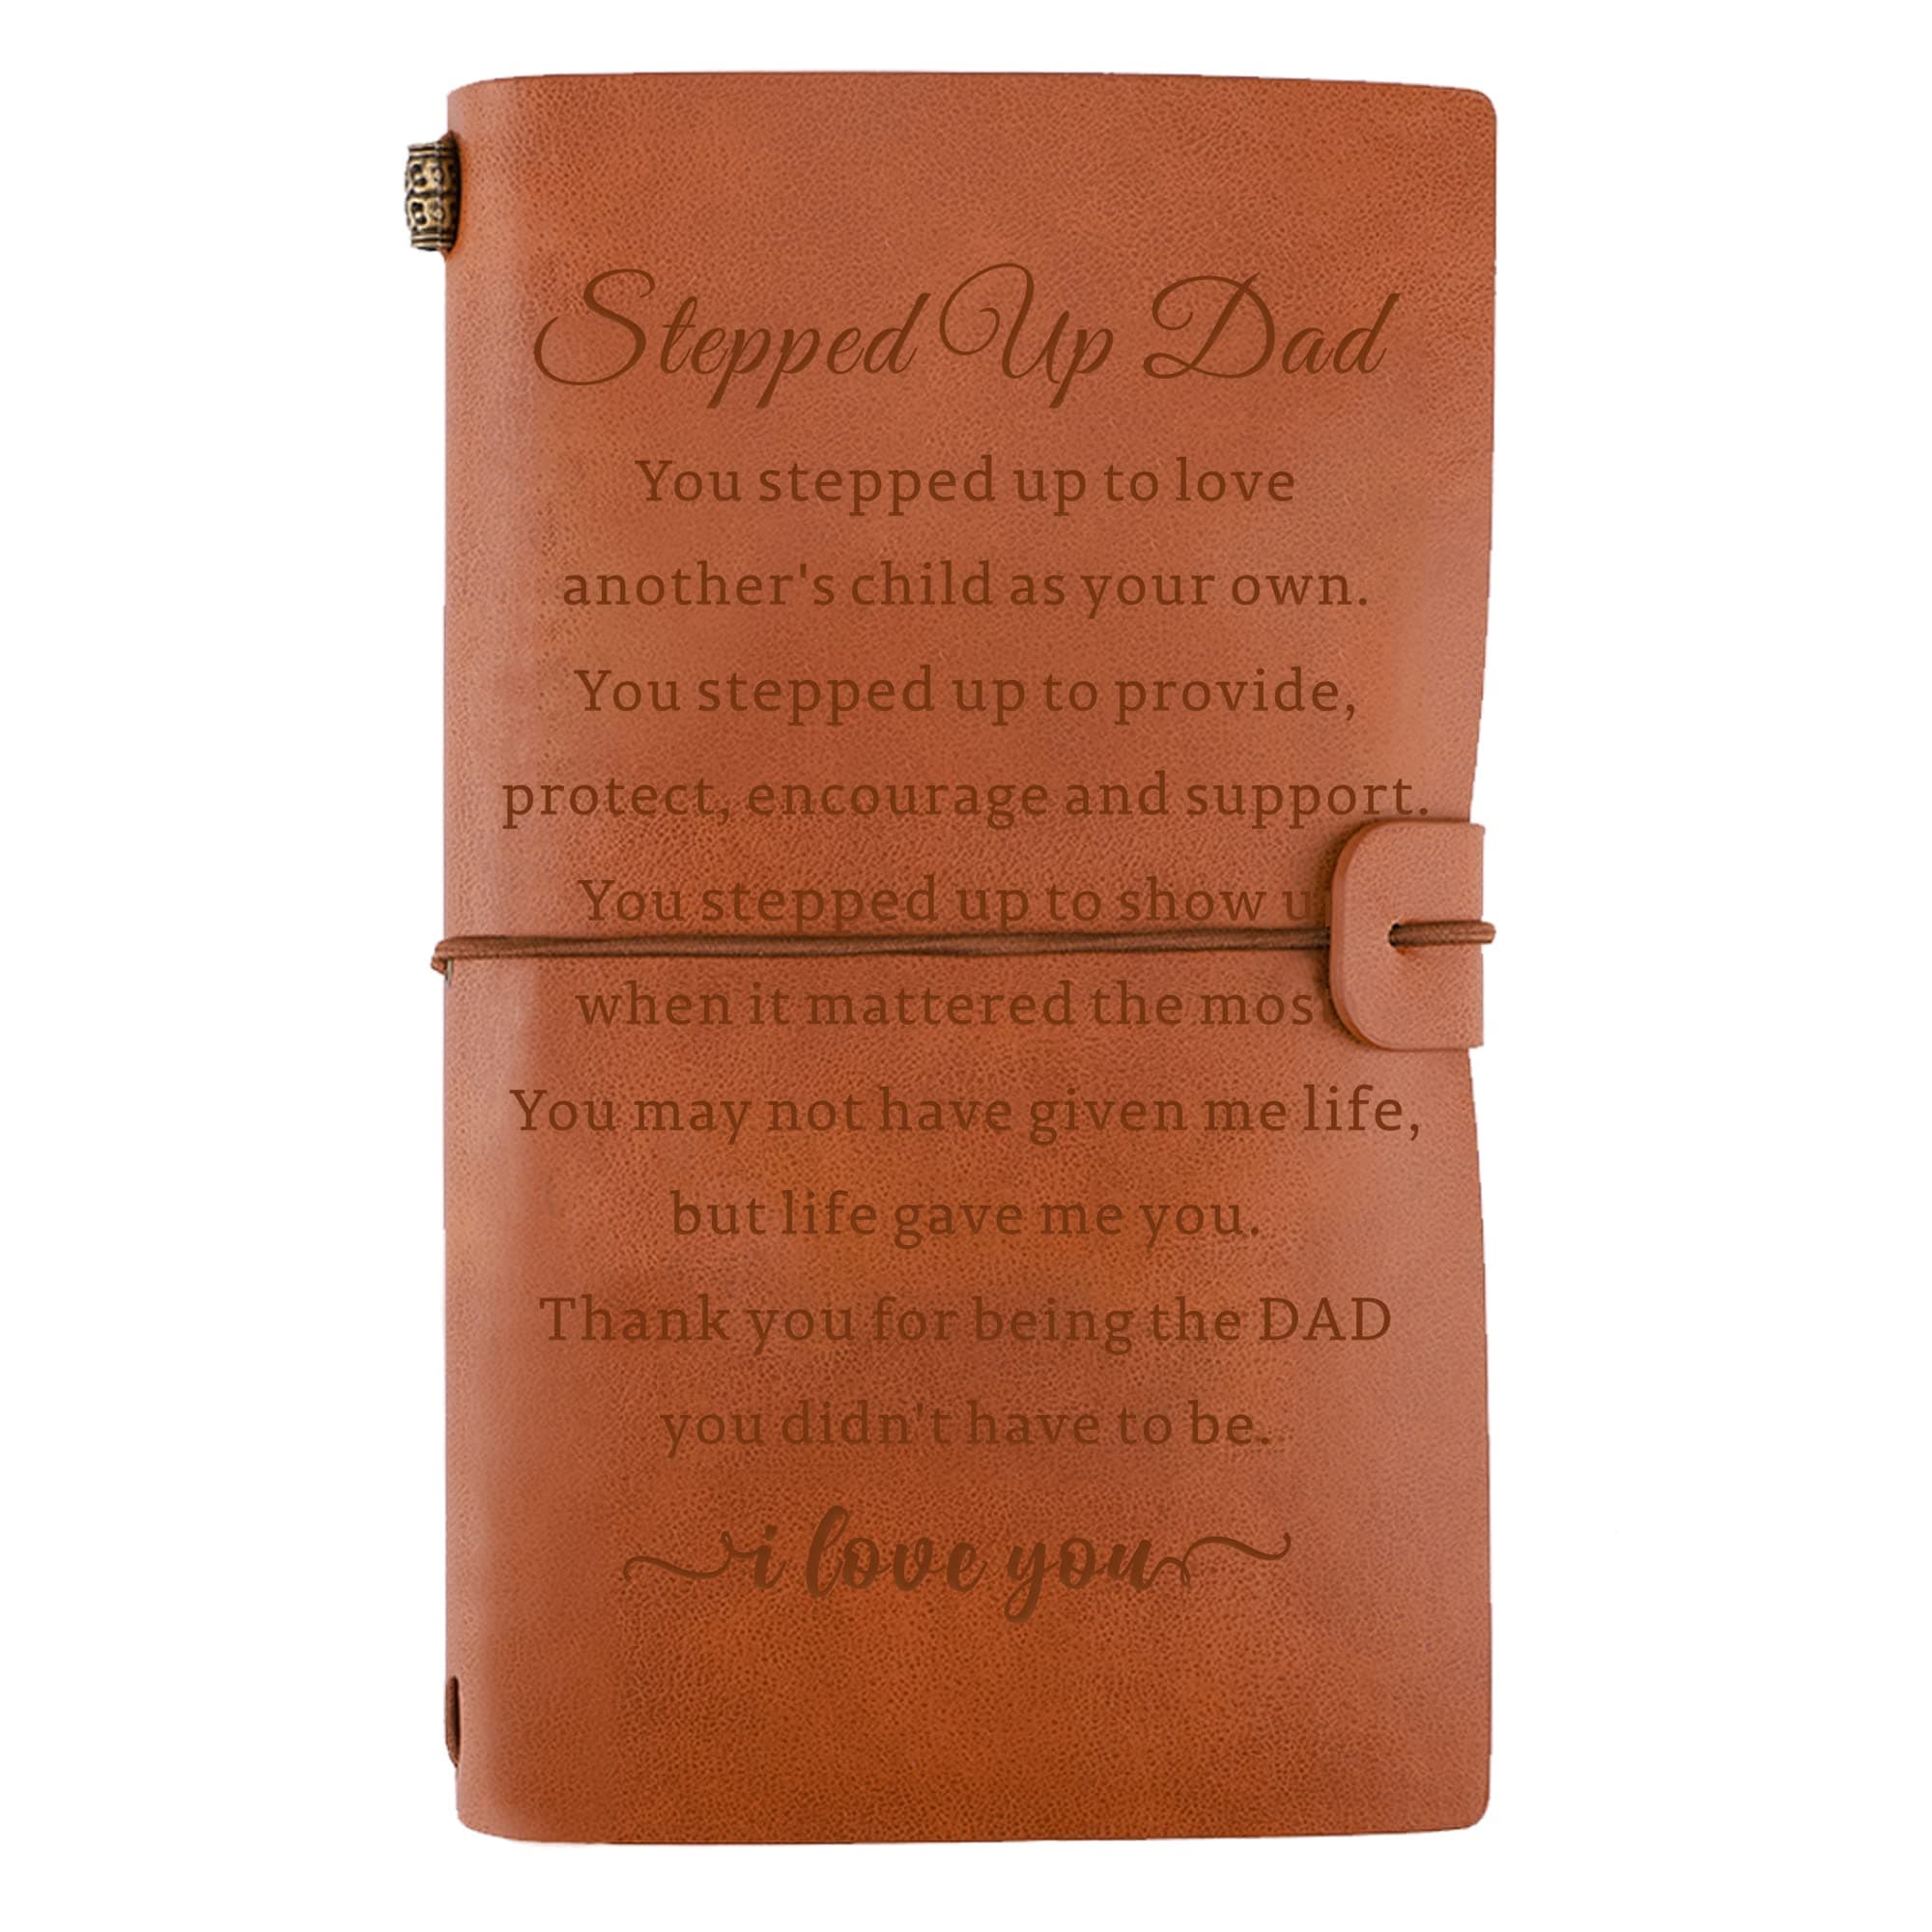 Stepped Up Dad
You stepped up to love
another's child as your own.
You stepped up to provide,
protect, encourage and support.
You stepped up to show u
when it mattered the mos
You may not have given me life,
but life gave me you.
Thank you for being the DAD
you didn't have to be.
i love you